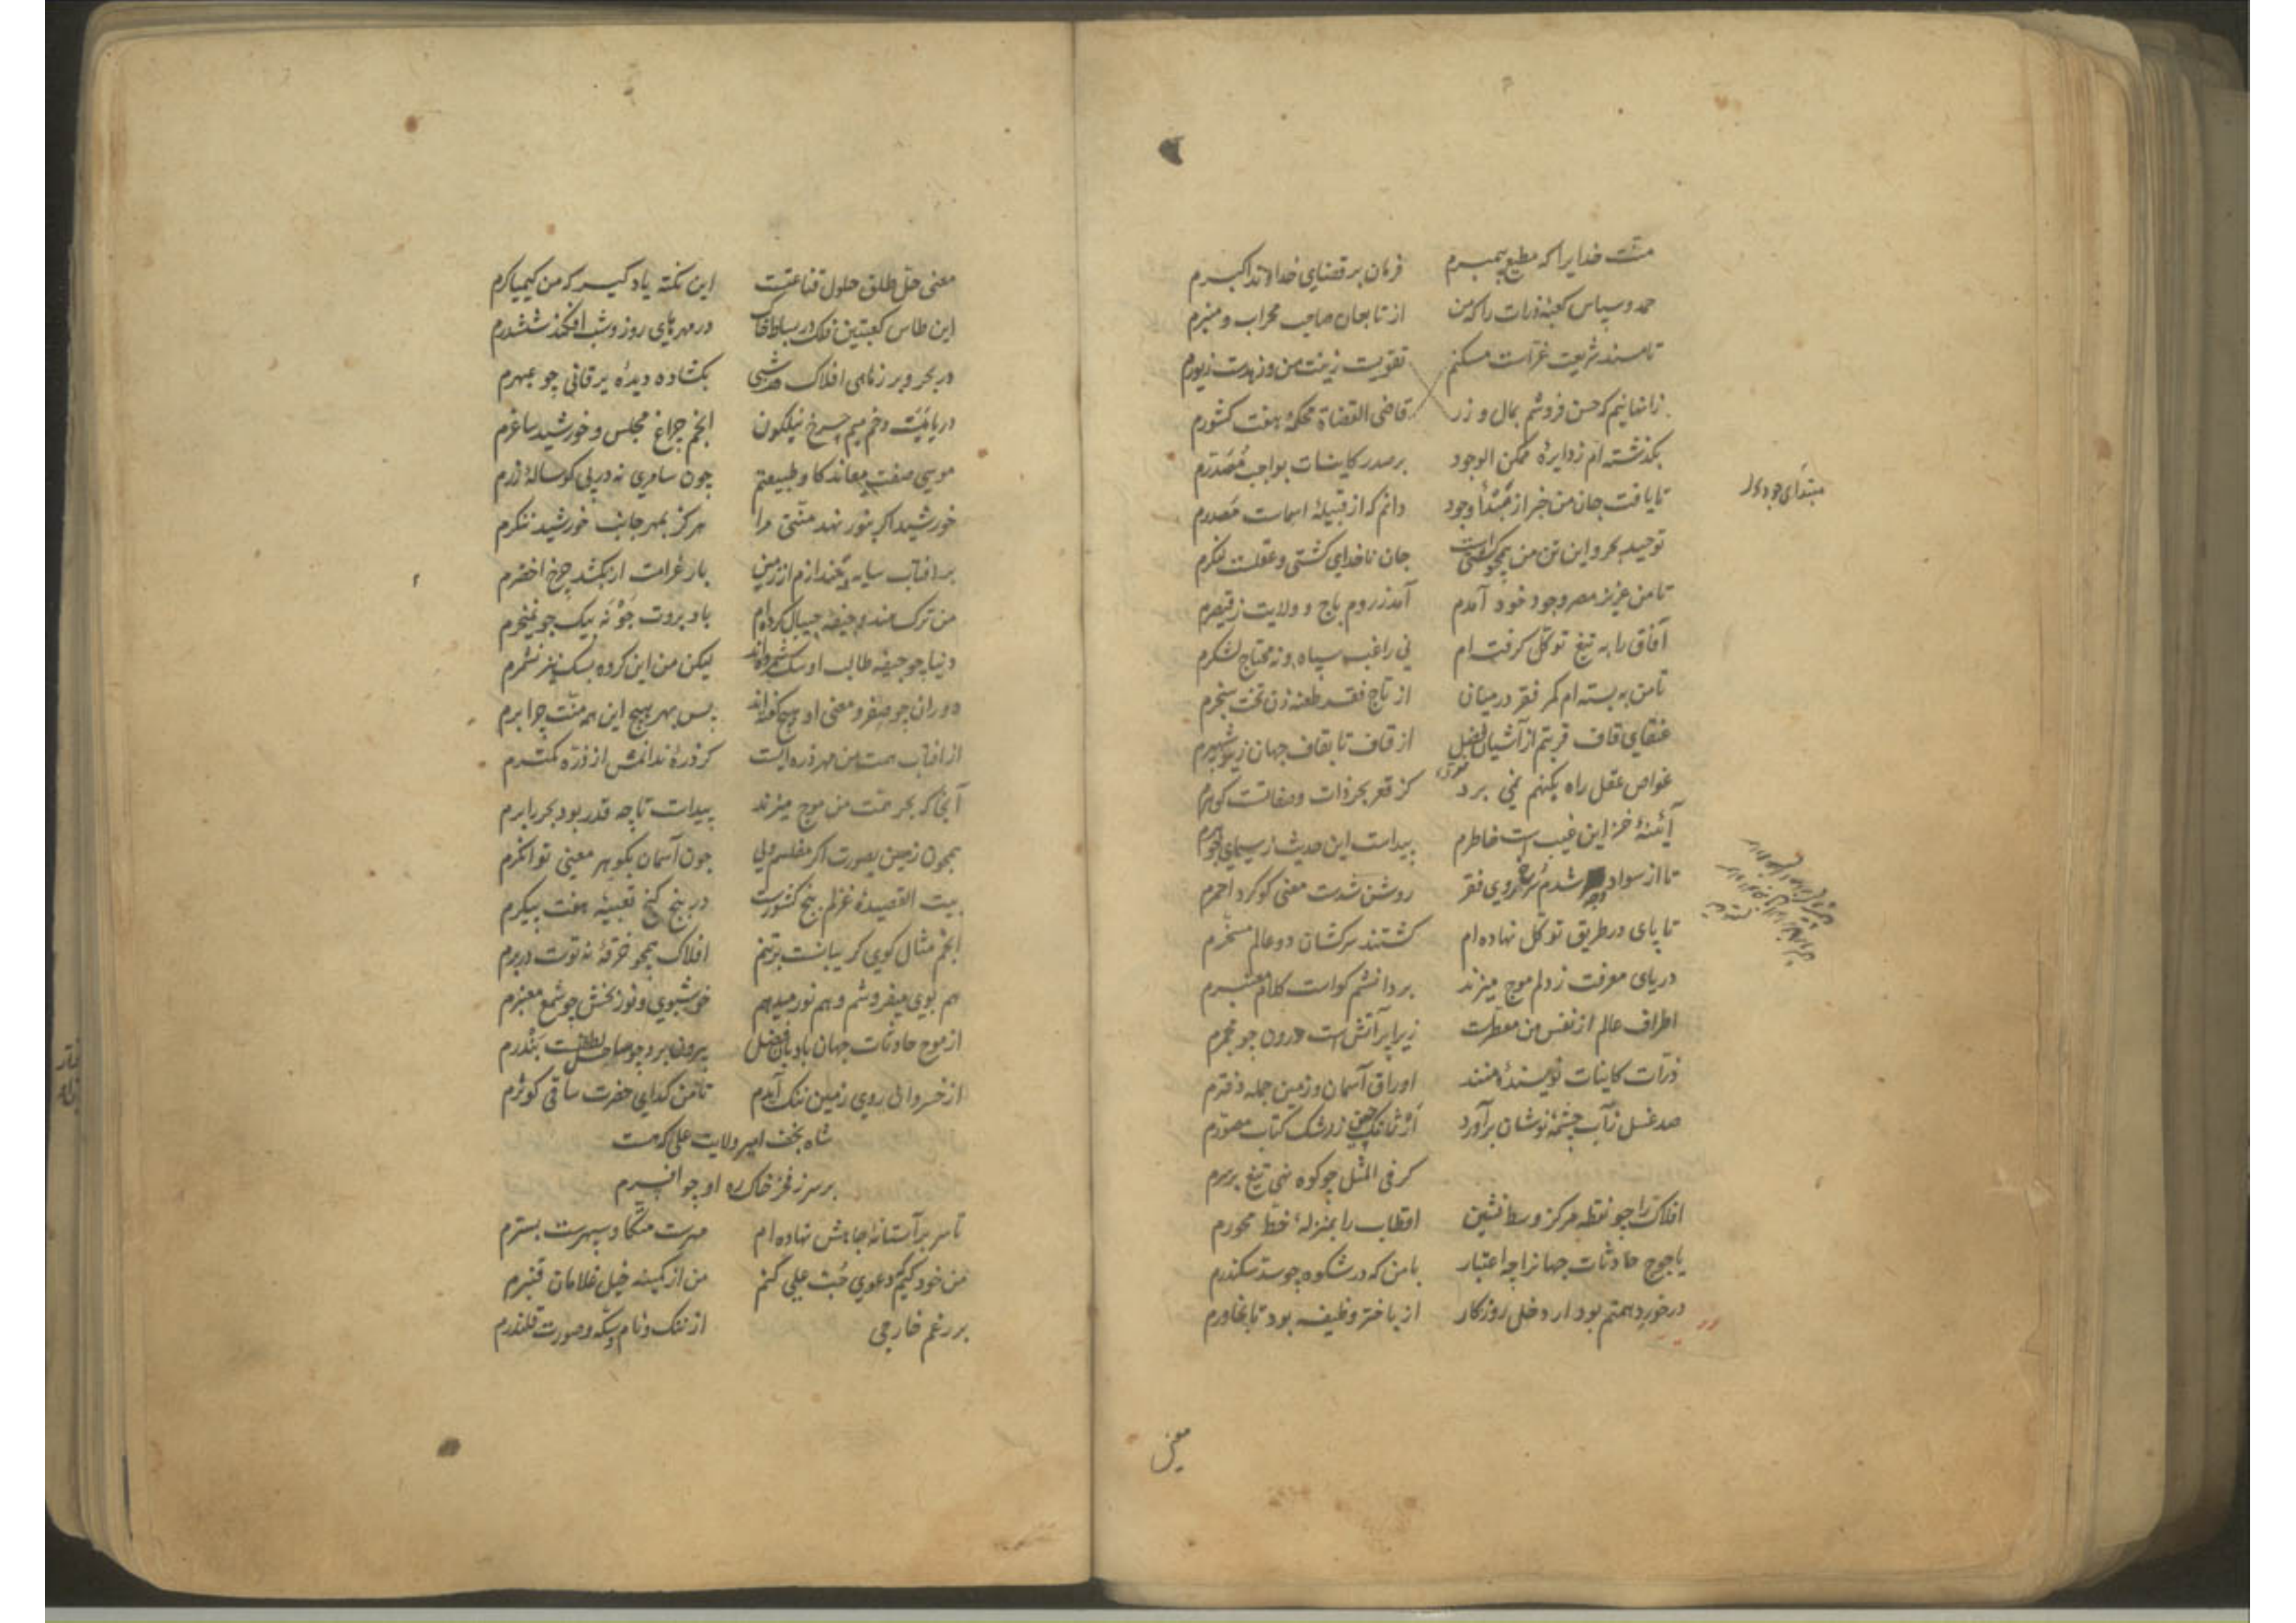 منت خدایرا که مطیع پیمبرم فرمان بر قضای خداوند اکبرم
حمد و سپاس کعبهٔ ذرات را که من از تابعان صاحب محراب و منبرم
تا مسند شریعت غراست مسکنم تقویت زینت من و زهدست زیورم
زانها نیم که حسن فروشم بمال و زر قاضی القضاة محکمهٔ هفت کشورم
بگذشته ام ز دایرهٔ ممکن الوجود بر صدر کاینات بواجب مصدرم
تا یافت جان من خبر از مبتدأ وجود دانم که از قبیلهٔ اسماست مصدرم
مبتدای وجود
توحید بحر و این تن من همچو کشتی است جان ناخدای کشتی و عقلست لنگرم
تا من عزیز مصر وجود خود آمدم آمد ز روم باج و ولایت ز قیصرم
آفاق را به تیغ توکل گرفته ام نی راغب سپاه و نه محتاج لشکرم
تا من به بسته ام کمر فقر در میان از تاج فقر طعنه زن تخت سنجرم
عنقای قاف قربتم از آشیان فضل از قاف تا بقاف جهان زیر شهپرم
غواص عقل راه بکنهم نمی برد کز قعر بحر ذات و صفاتست گوهرم
آئینهٔ خزاین غیب است خاطرم پیداست این حدیث ز سیمای
تا از سواد وجه شدم سرخ روی فقر روشن شدت معنی گوگرد احمرم
تا پای در طریق توکل نهاده ام گشتند سرکشان دو عالم مسخرم
دریای معرفت ز دلم موج میزند بر دانشم گواست کلام معتبرم
اطراف عالم از نفس من معطرست زیرا پر آتش است درون چو مجمرم
ذرات کاینات نویسندهٔ منند اوراق آسمان و زمین جمله دفترم
صد غسل ز آب چشمهٔ نوشان برآورد ز رشک کتاب مصورم
گر فی المثل چو کوه نهی تیغ بر سرم
افلاک را چو نقطه مرکز وسط نشین اقطاب را بمنزلهٔ خط محورم
یاجوج حادثات جهانرا چه اعتبار با من که در شکوه چو سد سکندرم
در خورد همتم بود ار دخل روزگار از باختر وظیفه بود تا بخاورم
معنی
معنی حل طلق حلول قناعتست این نکته یاد گیر که من کیمیاگرم
این طاس کعبتین فلک در بساط خاک در مهرهای روز و شب افکند ششدرم
در بحر و بر ز ماهی افلاک بگشاده دیدهٔ یرقانی چو عبهرم
دریا منیست و خم میم چرخ نیلگون انجم چراغ مجلس و خورشید ساغرم
موسی صفت معاند گاو طبیعتم چون سامری نه در پی گوسالهٔ زرم
خورشید اگر بنور نهد منتی مرا هرگز بمهر جانب خورشید ننگرم
بر آفتاب سایه نیندازم از زمین بار غرامت ار بکشد چرخ اخضرم
من ترک جیفهٔ جیپال کرده ام باد بروت جو نه بیک جو نمیخرم
دنیا چو جیفه طالب او سگ شمرده اند لیکن من این گروه بسگ نیز نشمرم
دوران چو صفر و معنی او هیچ گفته اند پس بهر هیچ این همه منت چرا برم
از آفتاب همت من مهر ذره ایست گر ذرهٔ ندانمش از ذره کمترم
آنجا که بحر همت من موج میزند پیداست تا چه قدر بود بحر را برم
همچون زمین بصورت اگر مفلسم ولی چون آسمان بگوهر معنی توانگرم
بیت القصیدهٔ غزلم پنج کشورست در پنج گنج تعبیهٔ هفت پیکرم
انجم مثال گوی گریبانست بر تنم افلاک همچو خرقهٔ نه توست در برم
هم بوی میفروشم و هم نور میدهم خوشبوی و نوربخش چو شمع معنبرم
از موج حادثات جهان بادبان فضل بیرون برد چو ساحل لطفست بندرم
از خسروان روی زمین ننگ آیدم تا من گدای حضرت ساقی کوثرم
شاه نجف امیر ولایت علی که هست
بر سر ز فخر خاک ره او چو افسرم
تا سر بر آستانهٔ جاهش نهاده ام مهرست متکا و سپهرست بسترم
من خود کیم که دعوی حب علی کنم من از کمینه خیل غلامان قنبرم
بر رغم خارجی از ننگ و نام و سکه و صورت قلندرم